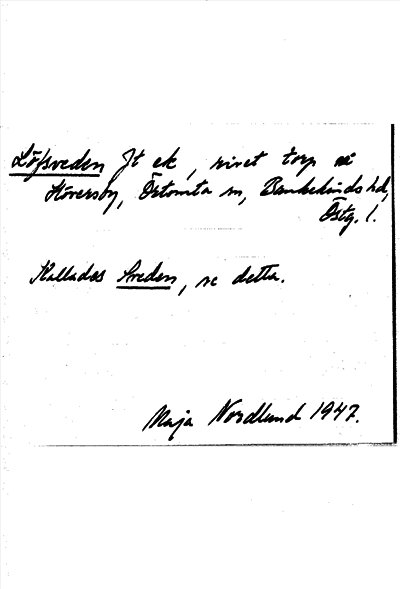 Löfsveden Jt ek, rivet torp på
Höversby, Örtomta sn, Bankekinds hd,
Östg. l.
Kallades Sveden, se detta.
Maja Nordlund 1947.